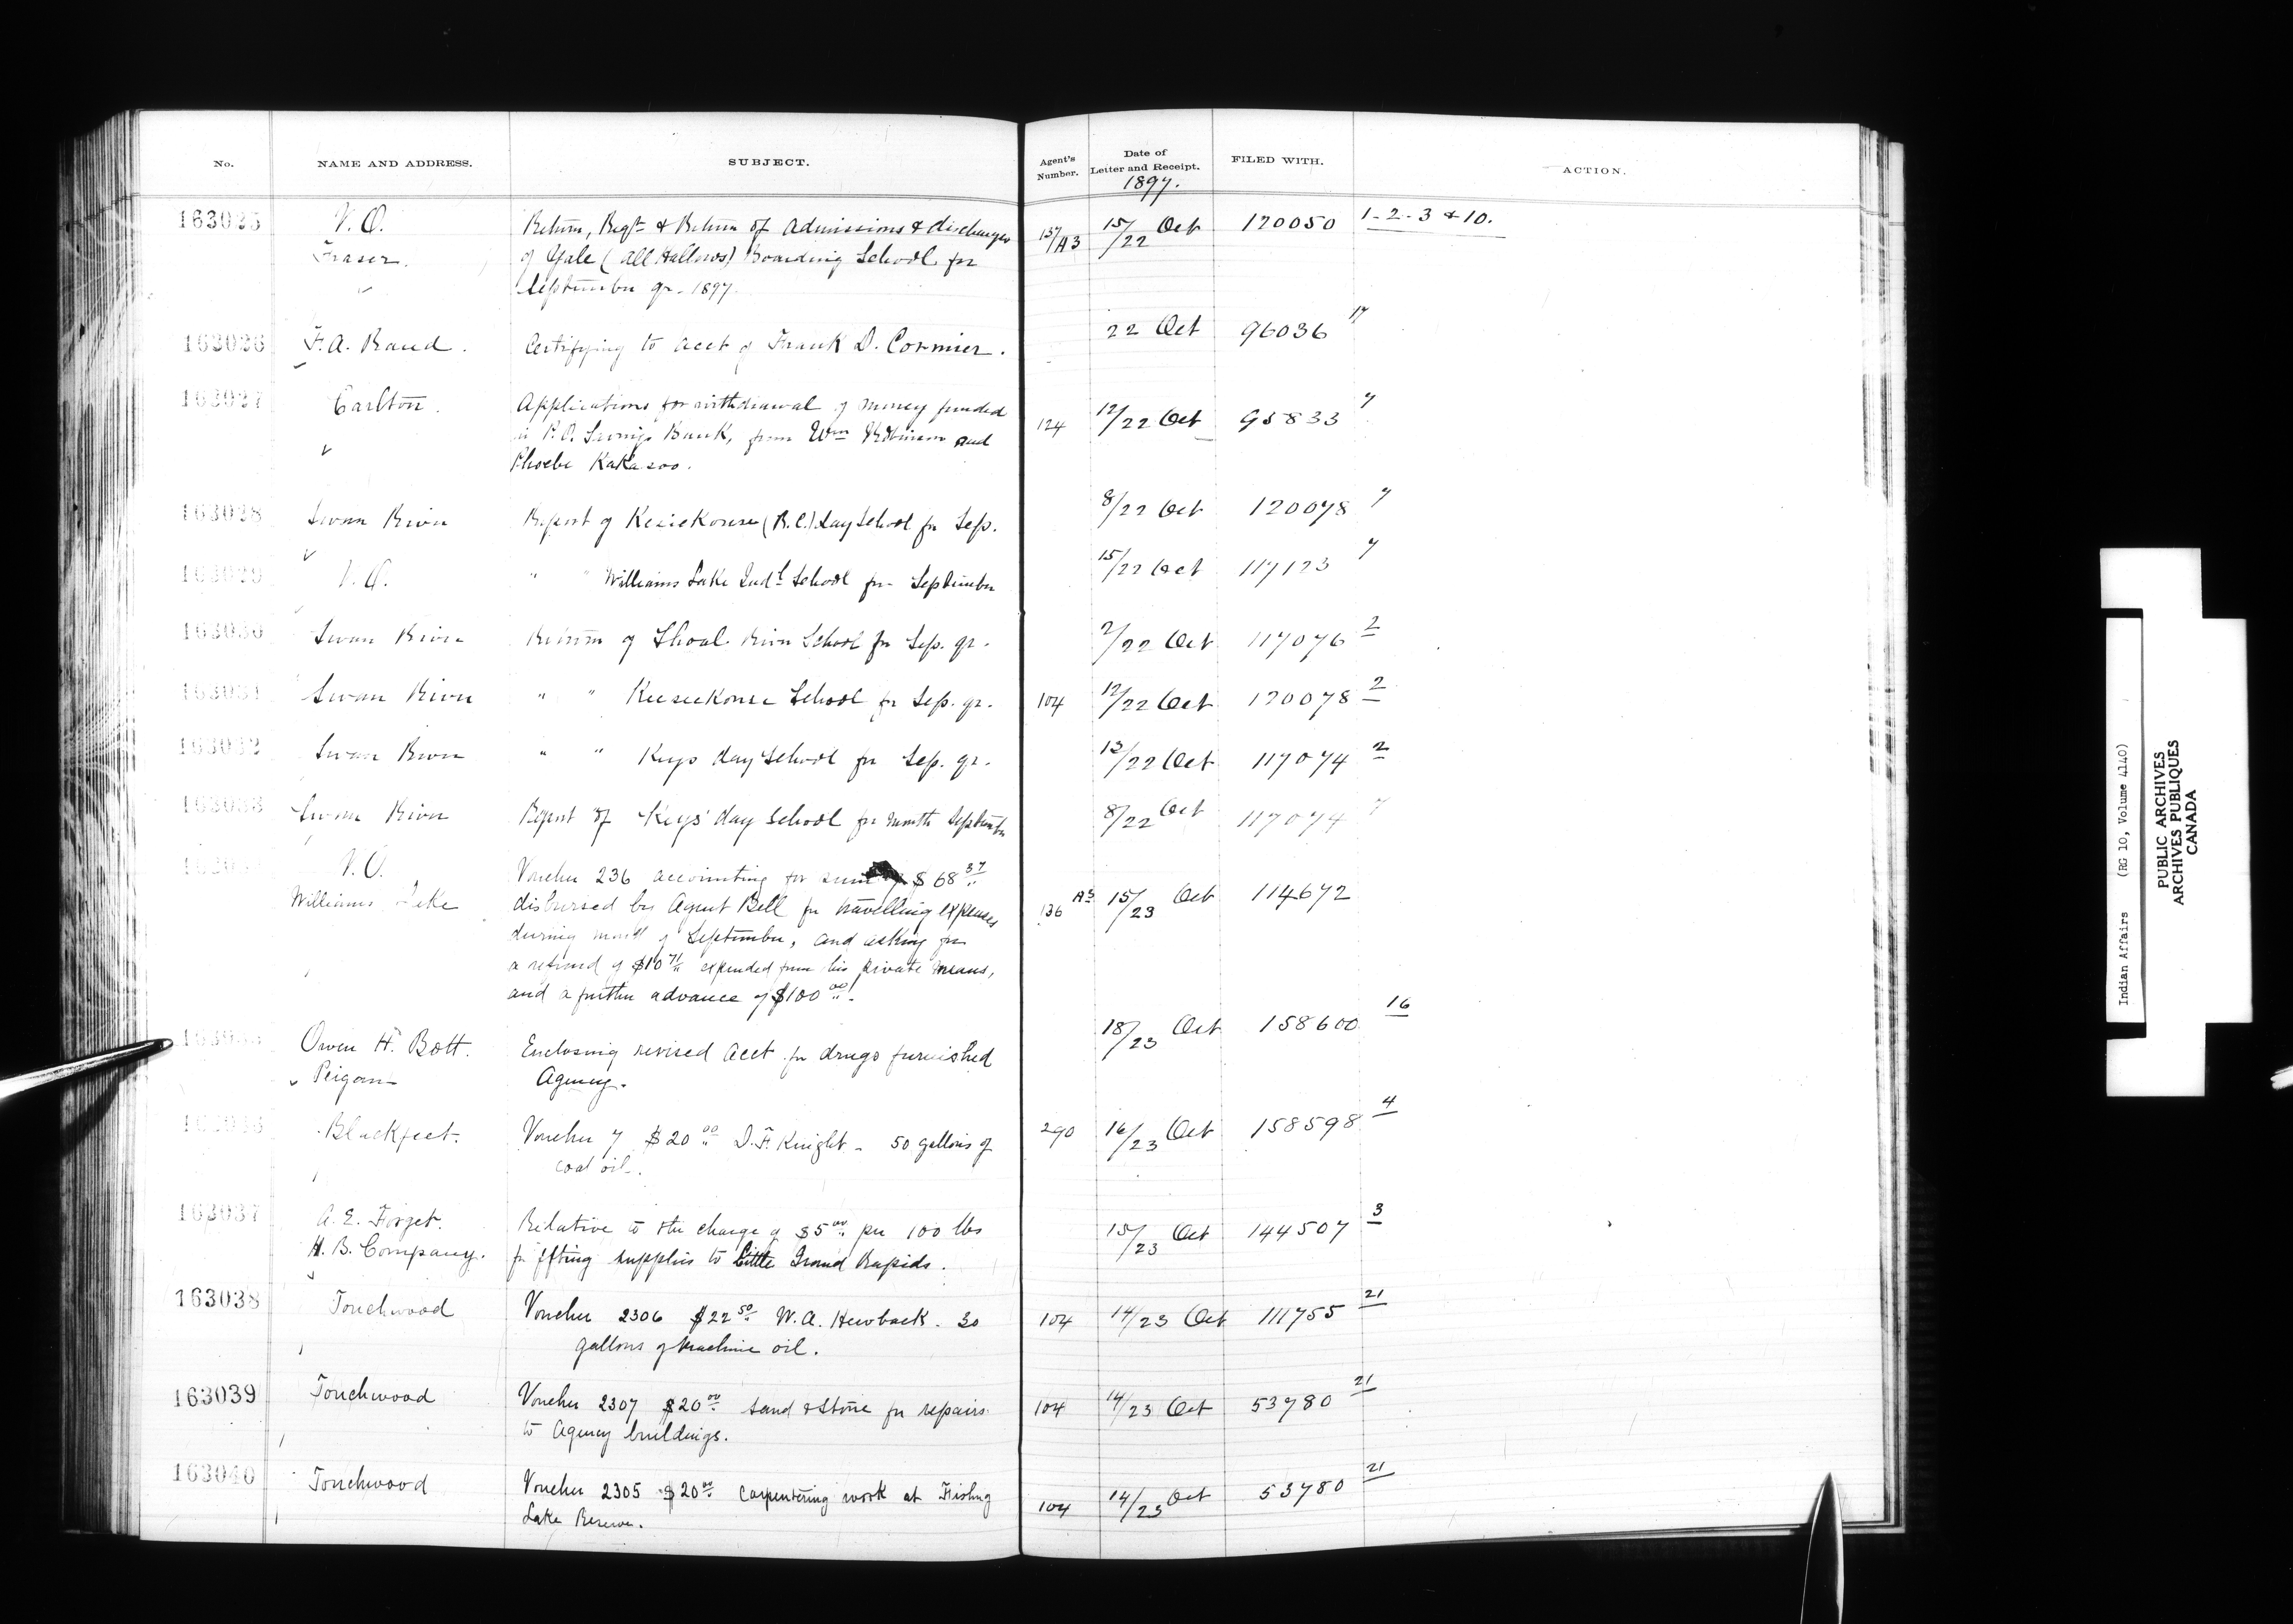 No. NAME AND ADDRESS. SUBJECT. Agent's Number. Date of Letter and Receipt. FILED WITH. ACTION.
1897.
163025 V.O. Return, Regr & Return of Admissions & discharges 137/A3 15/22 Oct 120050 1-2-3 & 10.
Fraser. of Yale (All Hallows) Boarding School for
September qr. 1897.
163026 F.A. Rand. Certifying to acct of Frank D. Cormier. 22 Oct 96036 17
163027 Carlton. Applications for withdrawal of money funded 124 12/22 Oct 95833 7
in P.O. Savings Bank, from Wm Robinson and
Phoebe Kakasoo.
163028 Swan River Report of Keseekouse (R.C.) Day School for Sep. 8/22 Oct 120078 7
163029 V.O. " " Williams Lake Indl School for September 15/22 Oct 117123 7
163030 Swan River Return of Shoal River School for Sep. qr. 7/22 Oct 117076 2
163031 Swan River " " Keeseekouse School for Sep. qr. 104 12/22 Oct 120078 2
163032 Swan River " " Keys day School for Sep. qr. 13/22 Oct 117074 2
163033 Swan River Report of Keys' day School for month September 8/22 Oct 117074 7
V.O. Voucher 236 accounting for sum of $68 37
Williams Lake disbursed by Agent Bell for travelling expenses 136 A3 15/23 Oct 114672
during month of September, and asking for
a refund of $10 71 expended from his private means,
and a further advance of $100 00.
163035 Owen H. Bott. Enclosing revised acct for drugs furnished 18/23 Oct 158600 16
Peigan Agency.
163036 Blackfeet. Voucher 7 $20 00 D.F. Knight - 50 gallons of 290 16/23 Oct 158598 4
coal oil.
163037 A.E. Forget. Relative to the charge of $5 00 per 100 lbs 15/23 Oct 144507 3
H.B. Company. for ffting supplies to Little Grand Rapids.
163038 Touchwood Voucher 2306 $22 50 W.A. Heuback. 30 104 14/23 Oct 111755 21
gallons of Machine oil.
163039 Touchwood Voucher 2307 $20 00 sand & stone for repairs 104 14/23 Oct 53780 21
to Agency buildings.
163040 Touchwood Voucher 2305 $20 00 Carpentering work at Fishing 104 14/23 Oct 53780 21
Lake Reserve.
Indian Affairs (RG 10, Volume 4140)
PUBLIC ARCHIVES
ARCHIVES PUBLIQUES
CANADA